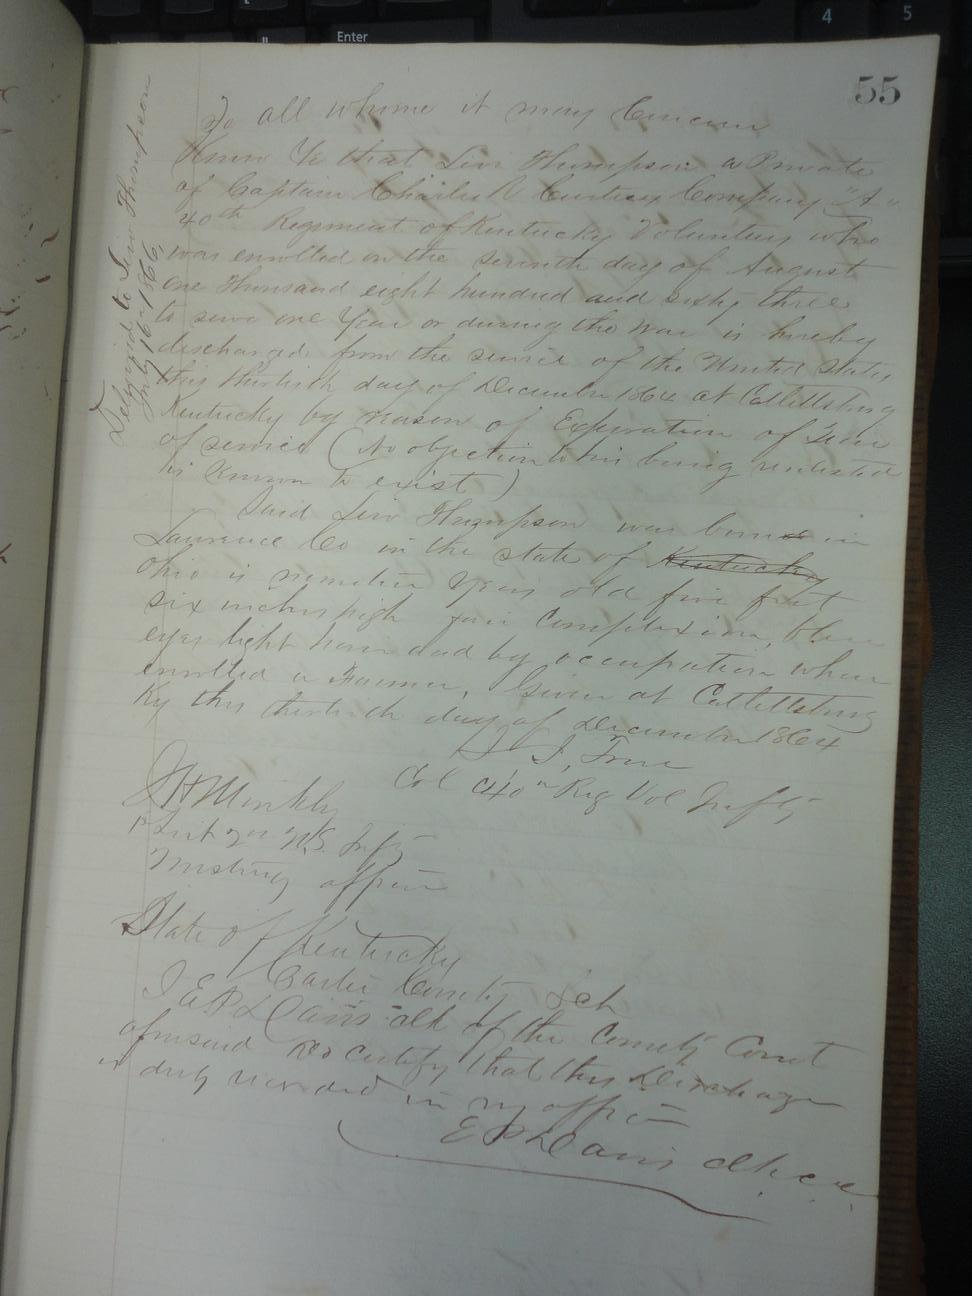 55
To all whome it may Concern
Know Ye that Levi Thompson a Private
of Captain Charles Company "A"
40th Regiment of Kentucky Volunteers who
was enrolled on the seventh day of August
one Thousand eight hundred and sixty three
to serve one Year or during the War is hereby
discharged from the service of the United States
this thirtieth day of December 1864 at Catlettsburg
Kentucky by reason of Expiration of Term
of service (No objection to his being reenlisted
is known to exist)
Said Levi Thompson was born in
Lawrence Co in the state of Kentucky
Ohio is nineteen years old five feet
six inches high fair Complexion, blue
eyes light hair and by occupation when
enrolled a Farmer, Given at Catlettsburg
Ky this thirtieth day of December 1864
True
Col 40th Reg Vol Infty
1st Infty
Mustering officer
State of Kentucky
Carter County Sct
I E P Davis clk of the County Court
aforesaid do certify that this Discharge
is duly recorded in my office
E P Davis clk
Delivered to Levi Thompson
July 16-1866
Enter
4
5